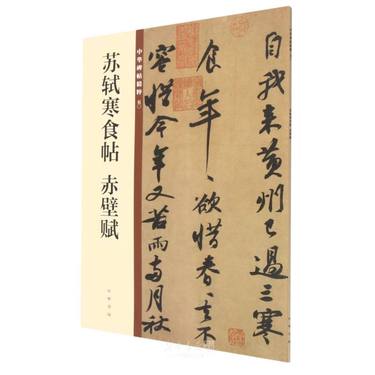 苏轼寒食帖 赤壁赋
中华碑帖精粹
中华书局
自我来黄州已過三寒
食年〻欲惜春〻去不
容惜今年又苦雨两月秋